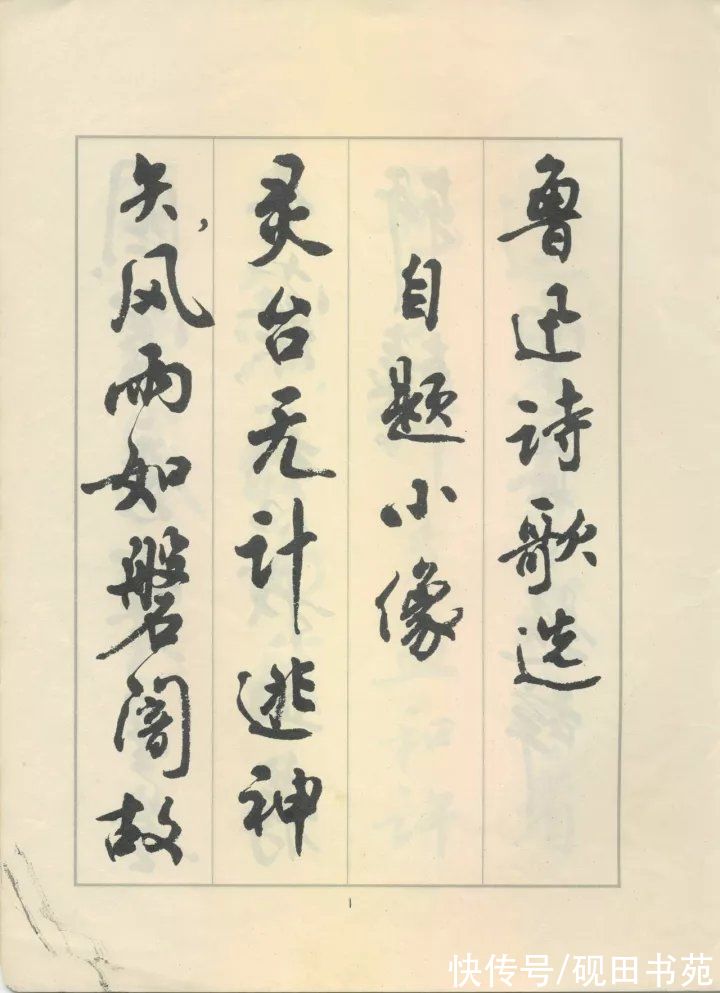 鲁迅诗歌选
自题小像
灵台无计逃神
矢,风雨如磐闇故
1
快传号/砚田书苑